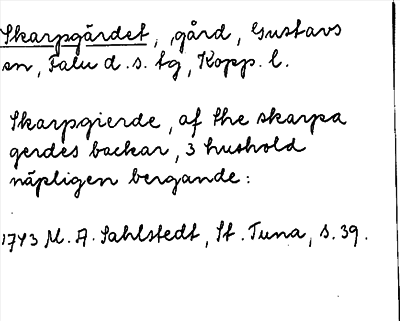 Skarpgärdet, gård, Gustavs
sn, Falu d.s. tg, Kopp. l.
Skarpgierde, af the skarpa
gerdes backar, 3 hushold
näpligen bergande:
1743 M. A. Sahlstedt, St. Tuna, s. 39.